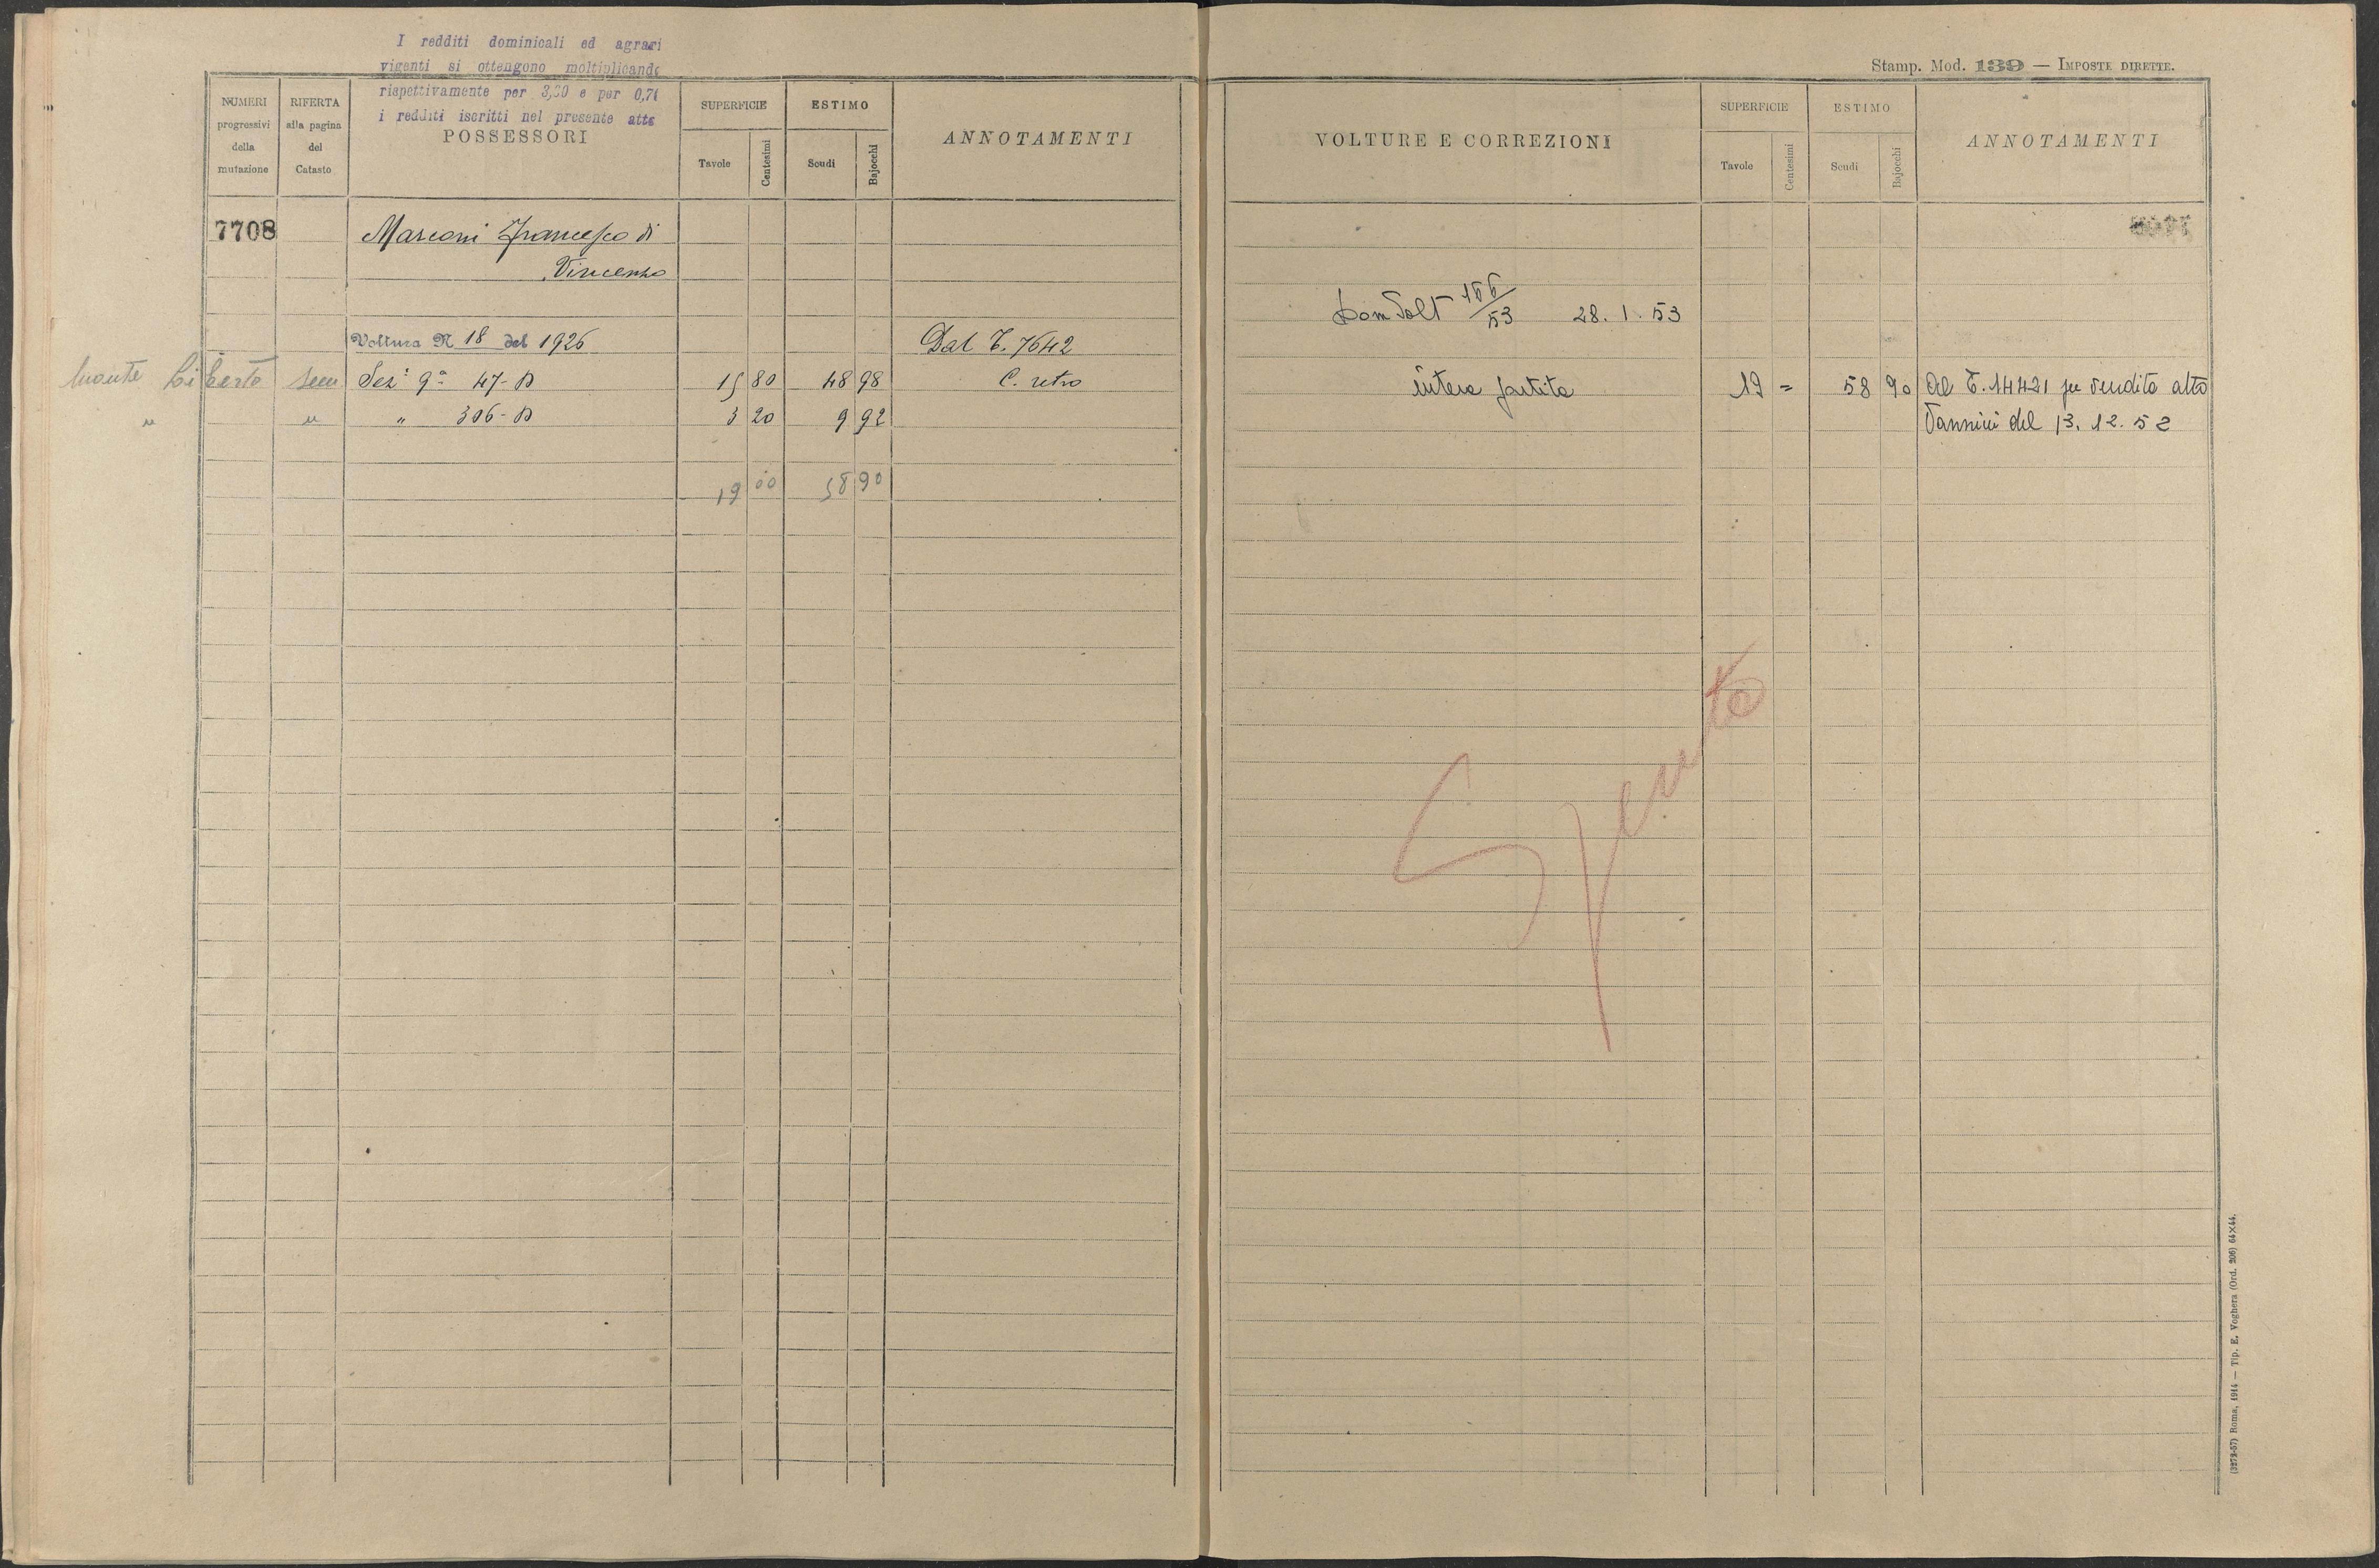 I redditi dominicali ed agrari
vigenti si ottengono moltiplicando
rispettivamente per 3,20 e per 0,74
i redditi iscritti nel presente atto
NUMERI progressivi della mutazione
RIFERTA alla pagina del Catasto
POSSESSORI
SUPERFICIE
Tavole
Centesimi
ESTIMO
Scudi
Bajocchi
ANNOTAMENTI
7708
Marconi Francesco di
Vincenzo
Voltura N 18 del 1926
Dal T. 7642
Monte Liberto sem Sez.e 9a 47-D 15 80 48 98 C. retro
" " " 306-D 3 20 9 92
19 00 58 90
Stamp. Mod. 139 — IMPOSTE DIRETTE.
VOLTURE E CORREZIONI
SUPERFICIE
Tavole
Centesimi
ESTIMO
Scudi
Bajocchi
ANNOTAMENTI
Dom Volt 166/53 28.1.53
intera partita 19 = 58 90 Al T. 14421 per vendita atto
Vannini del 13.12.52
Spenta
(3272-57) Roma, 1914 — Tip. E. Voghera (Ord. 206) 64×44.